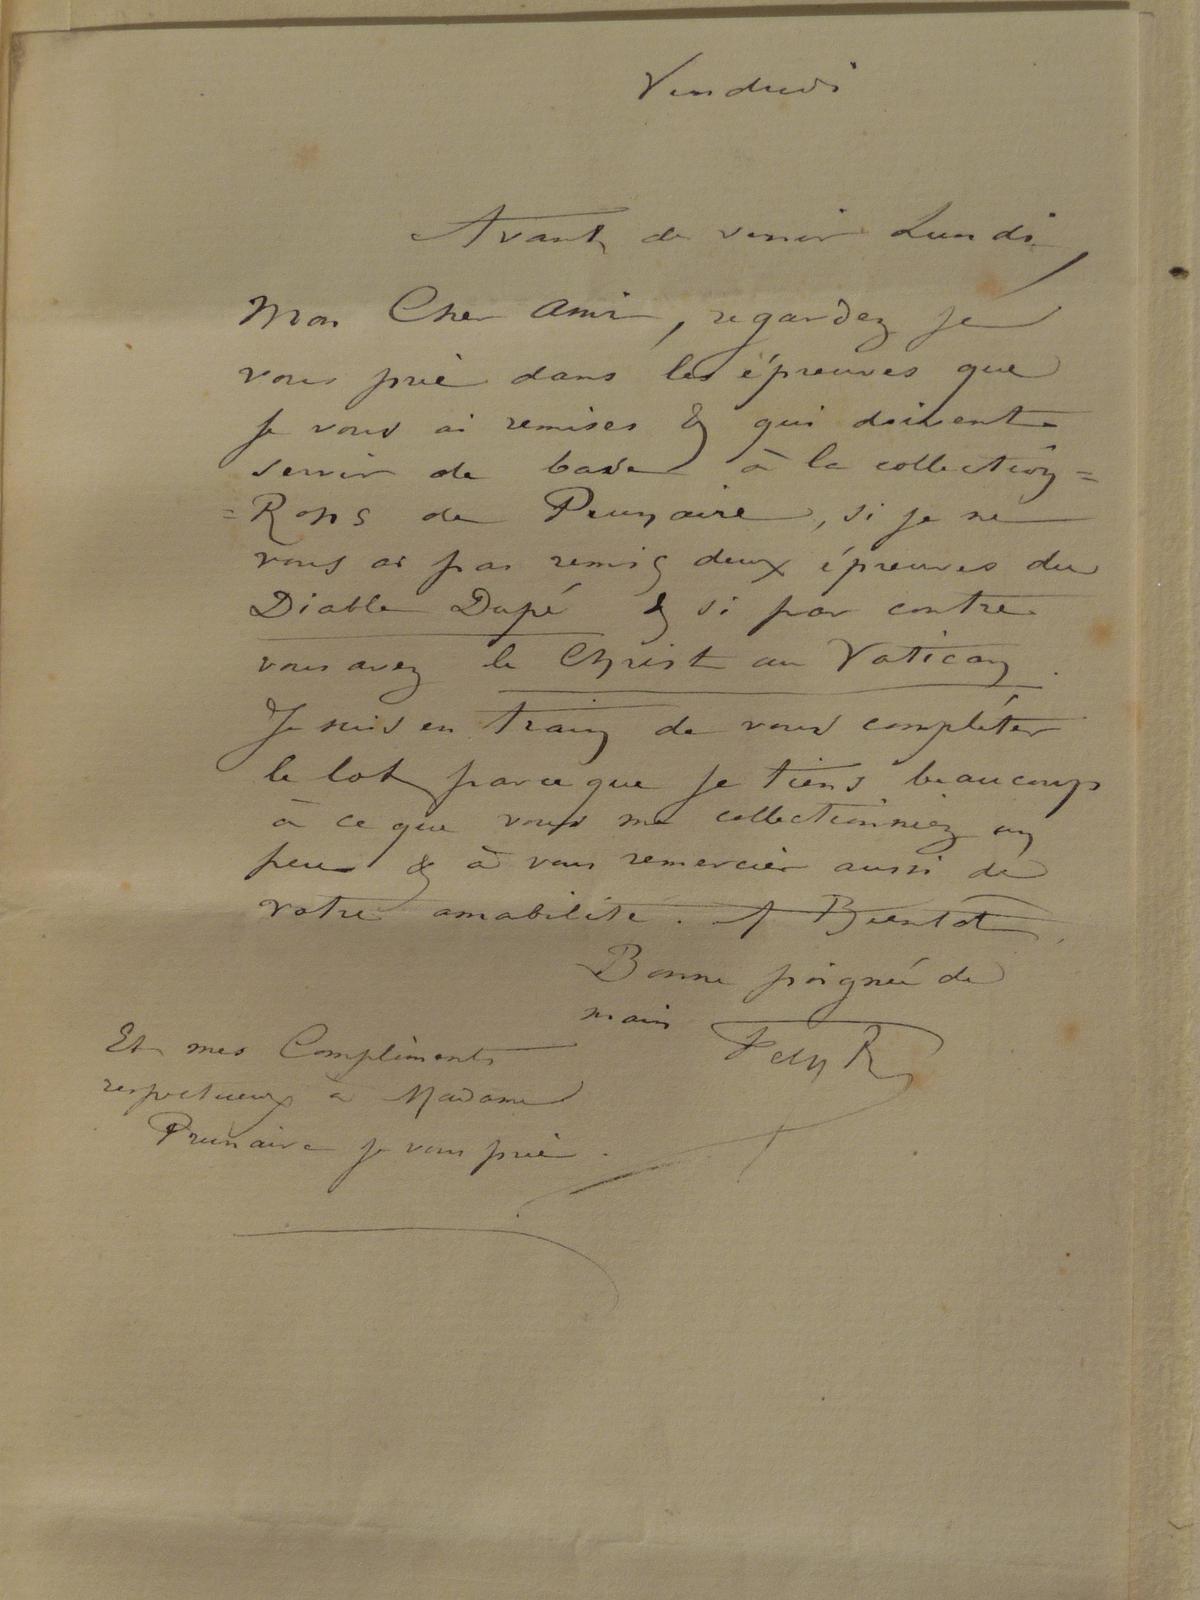 Vendredi
Avant de venir Lundi,
Mon Cher Ami, regardez je
vous prie dans les épreuves que
je vous ai remises & qui doivent
servir de base à la collection=
=Rops de Prunaire, si je ne
vous ai pas remis deux épreuves du
Diable Dupé & si par contre
vous avez le Christ au Vatican.
Je suis en train de vous compléter
le lot parce que je tiens beaucoup
à ce que vous me collectionniez un
peu & à vous remercier aussi de
votre amabilité. A Bientôt,
Bonne poignée de
main Fely R
Et mes Compliments
respectueux à Madame
Prunaire je vous prie.